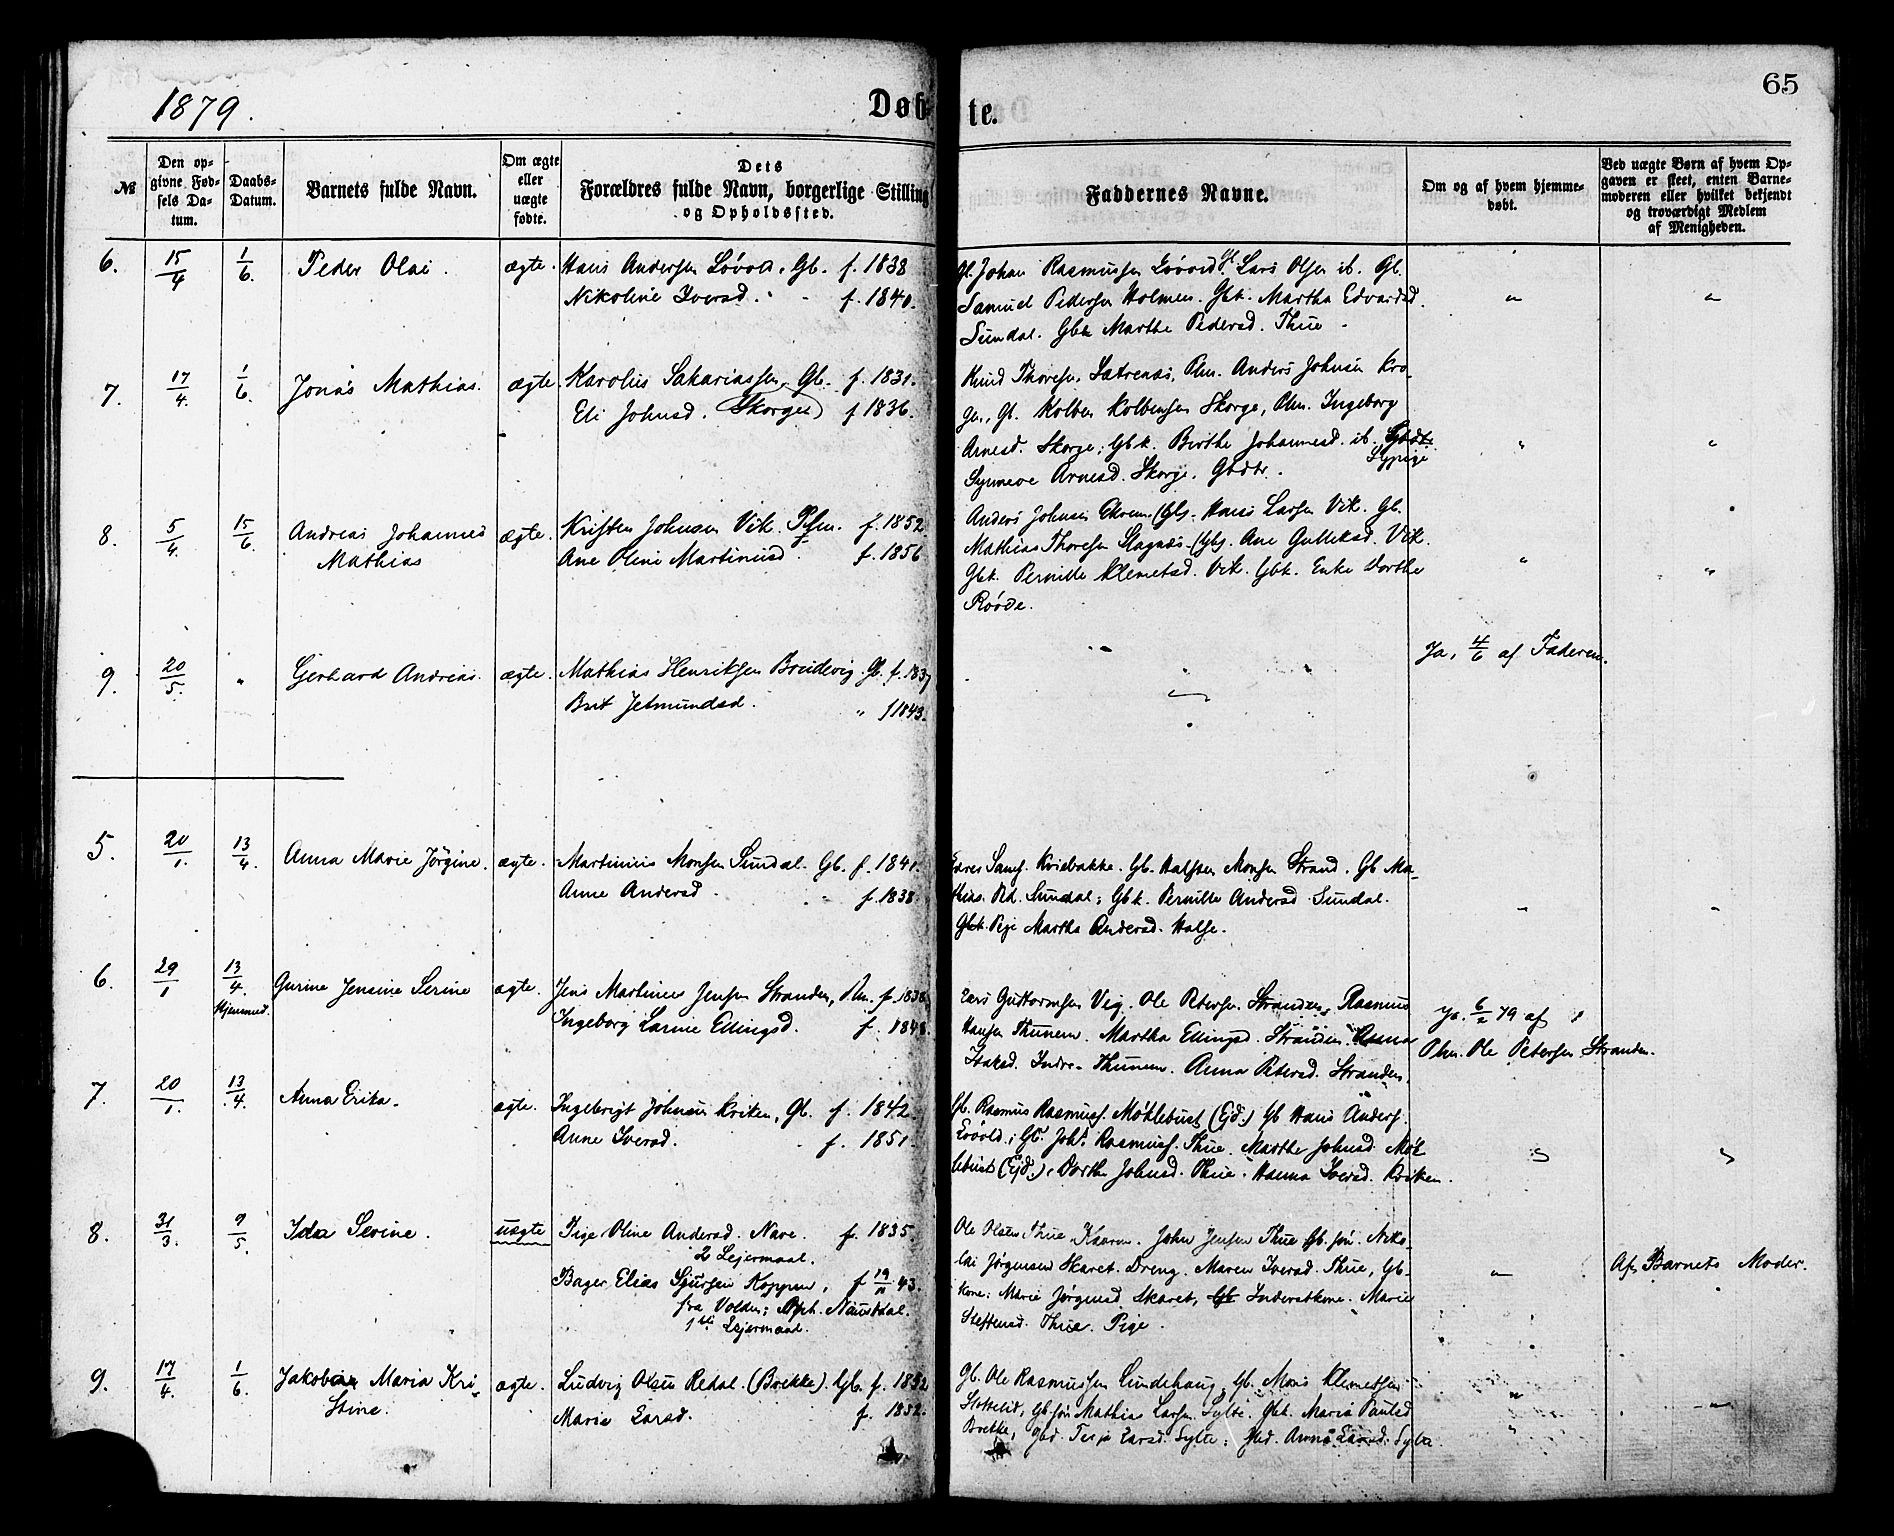 1879.
Døbte.
65
№
Den opgivne Fødsels Datum.
Daabs-Datum.
Barnets fulde Navn.
Om ægte eller uægte fødte.
Dets Forældres fulde Navn, borgerlige Stilling og Opholdssted.
Faddernes Navne.
Om og af hvem hjemmedøbt.
Ved uægte Børn af hvem Opgaven er skeet, enten Barnemoderen eller hvilket bekjendt og troværdigt Medlem af Menigheden.
6. 15/4 1/6. Peder Olai. ægte. Hans Andersen Lóvold, Gb. f. 1838
Nikoline Iversd. " f. 1840.
Gb. Johan Rasmussen Lóvold, Gb. Lars Olsen ib. Gb.
Samuel Pedersen Holmen. Gbk. Martha Edvardsd.
Sundal. Gbk Marthe Pedersd. Thue
7. 17/4. 1/6. Jonas Mathias. ægte Karolus Sakariassen, Gb. f. 1831.
Eli Johnsd. Skorgen f. 1836.
Knud Thoresen, Sætrenæs, Plm. Anders Johnsen Kro-
gen, Gb. Kolben Kolbensen Skorge, Plm. Ingeborg
Arnesd. Skorge; Gbk. Birthe Johannesd. ib.
Synneve Arnesd. Skorge. Gbdtr.
8. 5/4. 15/6. Andreas Johannes ægte. Kristen Johnsen Vik. f. 1852
Mathias Ane Oline Martinusd f. 1856
Anders Johnsen Ekrem (Gb). Hans Larsen Vik. Gb.
Mathias Thoresen Slagnæs. (Gb). Ane Gulleksd. Vik.
Gbk. Pernille Klemetsd. Vik. Gbk. Enke Dorthe
Róvde.
9. 20/5. " Gerhard Andreas. ægte. Mathias Henriksen Breidevig. Gb. f. 1837
Brit Jetmundsd. " f 1843.
Ja, 4/6 af Faderen.
5. 20/1. 13/4. Anna Marie Jörgine. ægte. Martinus Monsen Sundal. Gb. f. 1841.
Anne Andersd. f. 1838
Kviebakke. Gb. Halsten Monsen Strand. Gb Ma-
thias Pd. Sundal; Gbk. Pernille Andersd Sundal.
Gbk. Pige Martha Andersd. Halse.
6. 29/1 13/4. Gurine Jensine Serine ægte. Jens Martinus Jensen Stranden, Plm. f. 1836
Hjemmed. Ingeborg Larine Ellingsd. f. 1848
Lars Guttormsen Veg. Ole Petersen. Stranden, Rasmus
Hansen Thunem. Martha Ellingsd. Stranden.
Isaksd. Indre-Thunem. Anna Petersd. Stranden.
Ja. 6/2 79 af
Plm. Ole Petersen Stranden.
7. 20/1. 13/4. Anna Erika. ægte. Ingebrigt Johnsen Kviken, Gb. f. 1842.
Anne Iversd. f. 1851.
Gb. Rasmus Rasmuss. Möklebust (Ejd.) Gb Hans Anders.
Lóvold; Gb. Johs. Rasmuss. Thue. Marthe Johnsd. Mók-
lebust (Ejd.), Dorthe Johnsd. Thue. Hanna Iversd. Kviken.
8. 31/3. 9/5. Ida Serine. uægte Pige Oline Andersd. Nave. f. 1835.
2 Lejermaal.
Bager Elias Sjursen Koppen, f 19/11 43.
fra Volden; Oph. Naustdal.
1ste Lejermaal.
Ole Olsen Thue, Kaarm. John Jensen Thue Gb.sön. Niko-
lai Jørgensen Skaret. Dreng. Maren Iversd. Thue, Gb-
kone; Marie Jørgensd. Skaret, Inderstkone. Marie
Steffensd. Thue. Pige.
Af Barnets Moder.
9. 17/4. 1/6. Jakobine Maria Kri- ægte. Ludvig Olsen Redal. (Brekke). Gb. f. 1852
stine. Marie Larsd. f. 1852.
Gb. Ole Rasmussen Lindehaug, Gb. Mons Klemetsen
Stettelid, Gb.sön Mathias Larsen Sylte. Gbk. Maria Paulsd
Brekke, Larsd. Sylte; Anne Larsd. Sylte